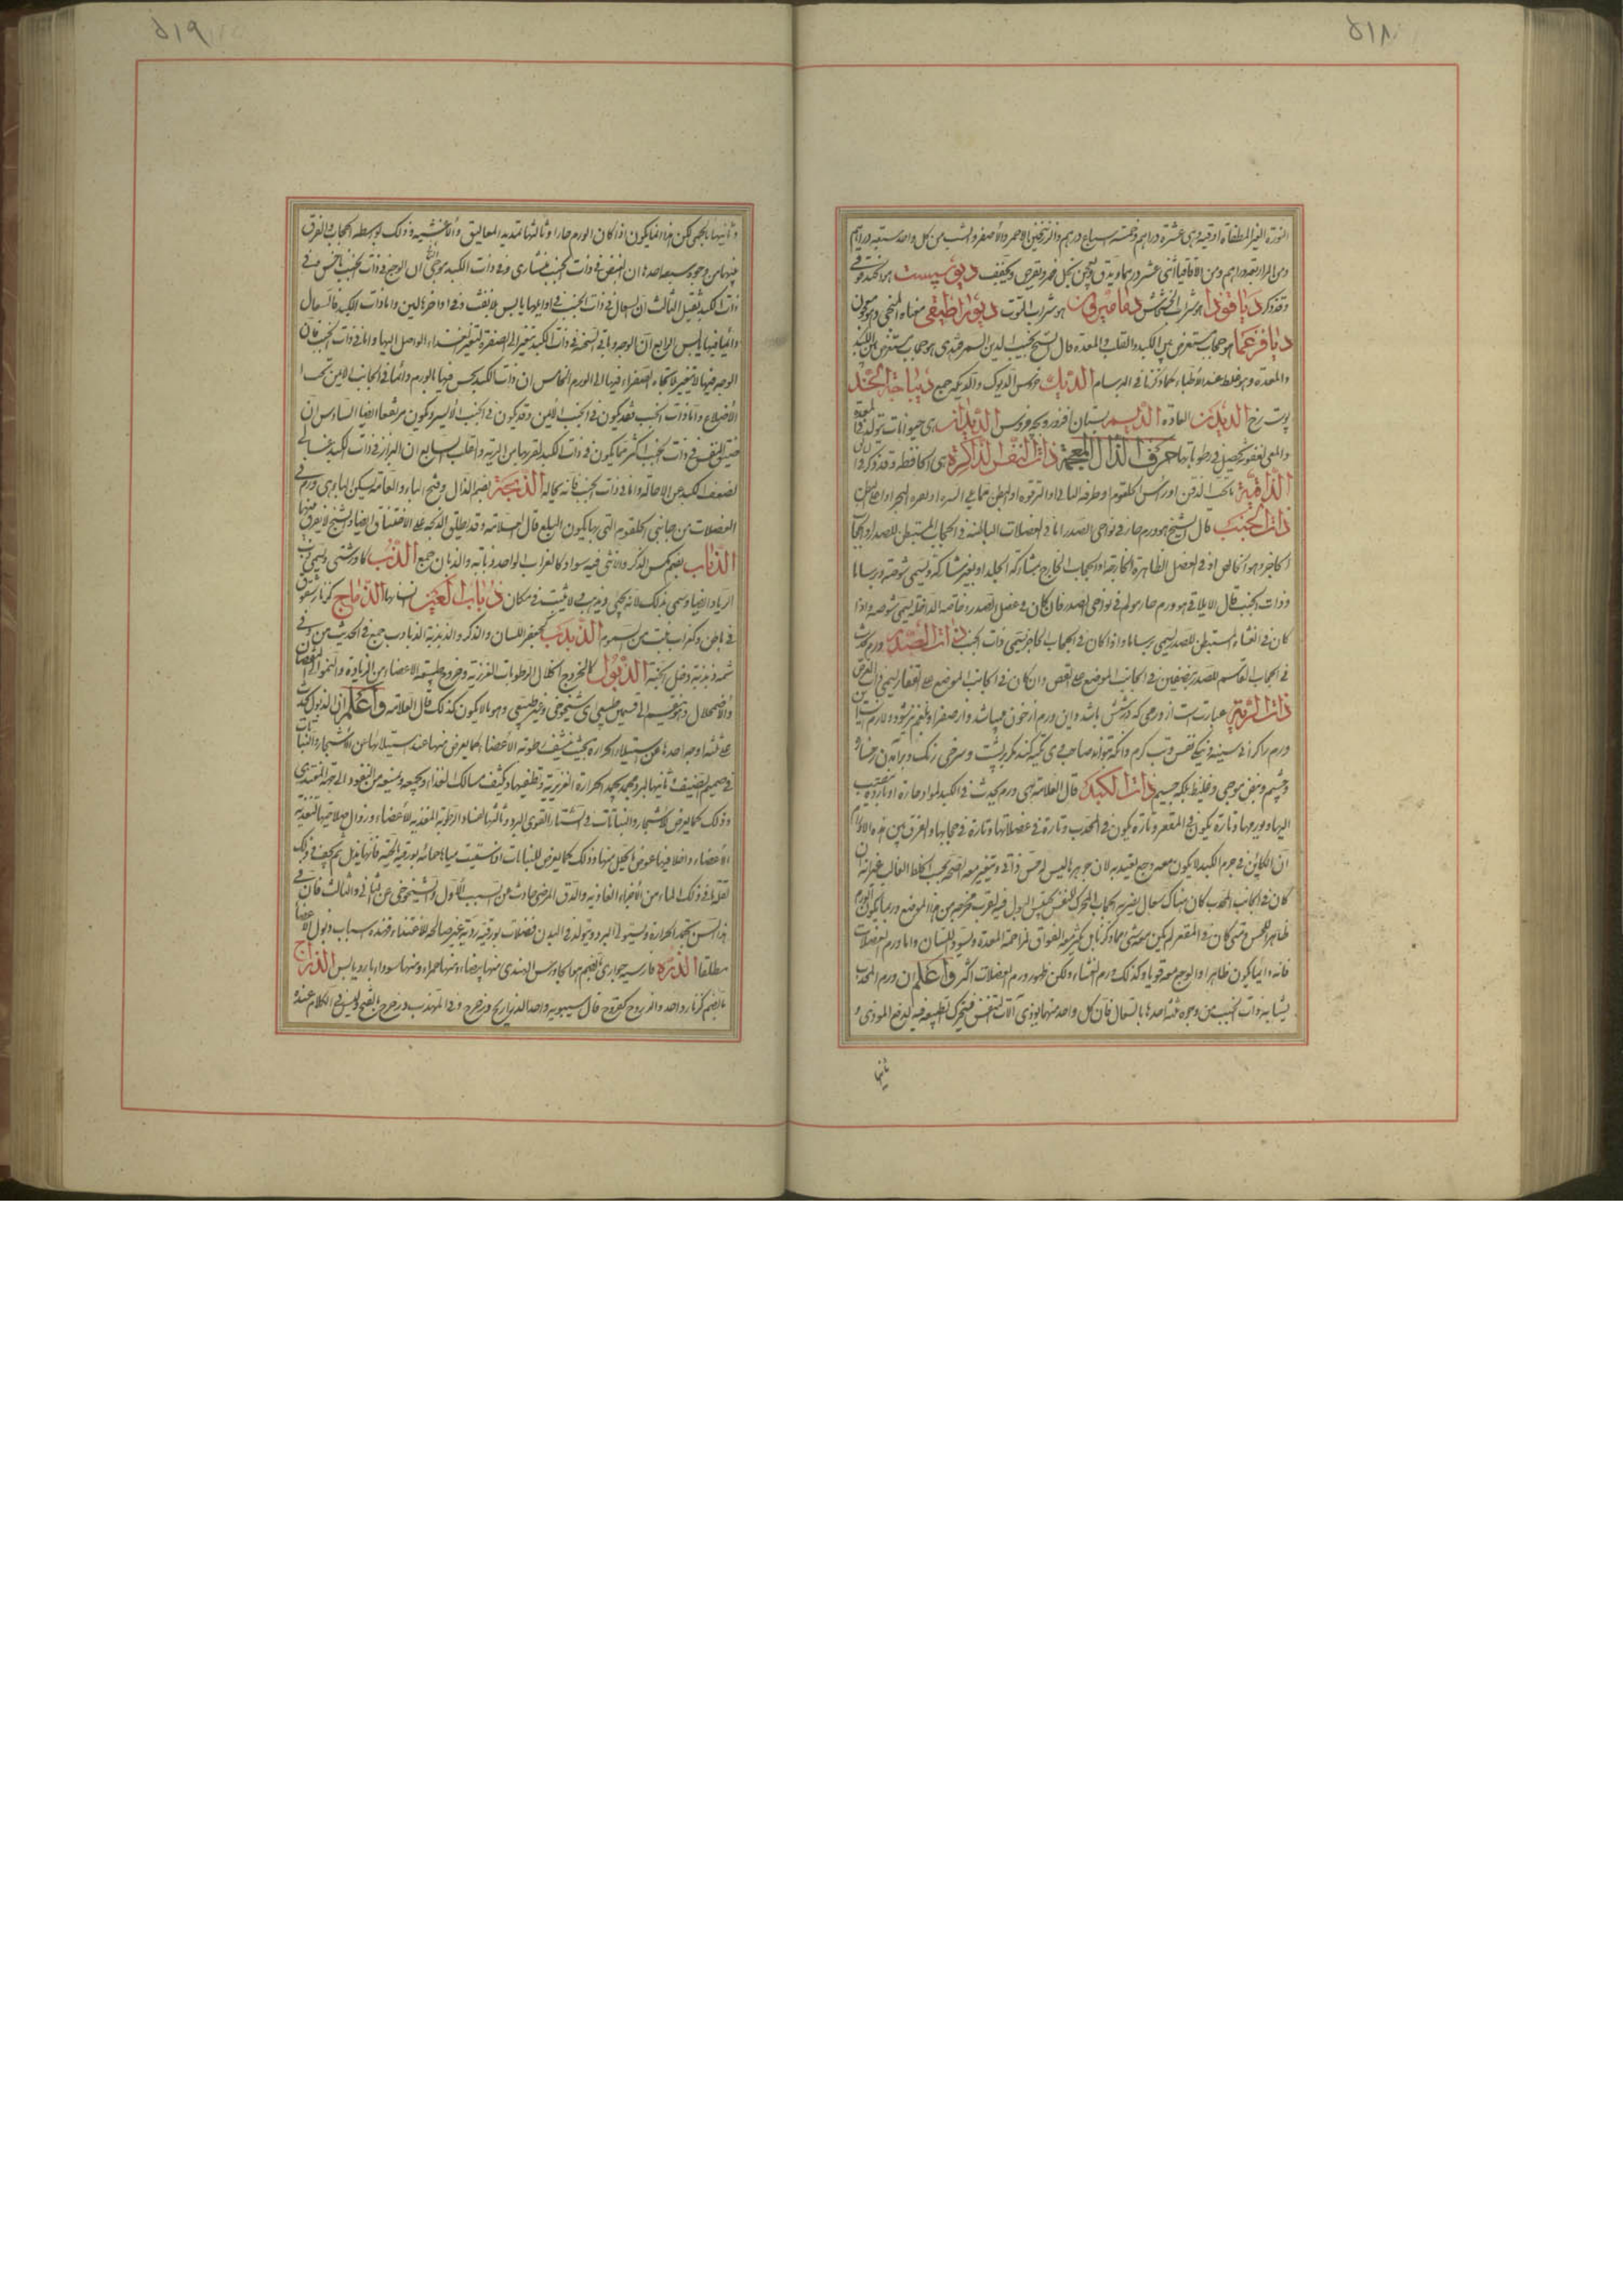 ۵۱۸
النورة الغير المطفاة اوقية وهى عشرة دراهم وخمسة اسباع درهم والزرنيخين الاحمر والأصفر والشب من كل واحد ستة دراهم
ومن المرار بعة دراهم ومن الاقاقيا اثنى عشر درهما ويدق ويعجن بخل خمر ويقرص ويجفف ديوسپست هو الحندقوقى
وقد ذكر دياقوذا هو شراب الخشخاش دياميرون هو شراب التوت
ديافرغما هو حجاب معترض بين الكبد والقلب والمعدة قال الشيخ نجيب الدين السمرقندى هو حجاب معترض بين الكبد
والمعدة وهو غلط عند الأطباء كما ذكرنا فى البرسام الديك خروس الديوك والديكة جمع ديباجة الخد
پوست رخ الديدن العادة الديسم بستان افروز الديدان هى حيوانات تتولد فى المعدة
والمعى لعفونة تحصل فى رطوباتها حرف الذال المعجمة ذات النفس الذاكرة هى الحافظة وقد ذكر
الذاقنة ما تحت الذقن او راس الحلقوم او طرفه الناتى او الترقوة او البطن مما يلى السرة
ذات الجنب قال الشيخ هو ورم حار فى نواحى الصدر اما فى العضلات الباطنة فى الحجاب المستبطن للصدر او الحجاب
الحاجز وهو الخالص او فى العضل الظاهرة الخارجة او الحجاب الخارج بمشاركة الجلد او بغير مشاركة ويسمى شوصة وبرساما
وذات الجنب قال الايلاقى هو ورم حار مولم فى نواحى الصدر فان كان فى عضل الصدر خاصة الداخلة يسمى شوصة واذا
كان فى الغشاء المستبطن للصدر يسمى برساما واذا كان فى الحجاب الحاجز يسمى ذات الجنب ذات الصدر ورم يحدث
فى الحجاب القاسم للصدر بنصفين فى الجانب الموضوع على القص وان كان فى الجانب الموضوع على الفقار يسمى ذات العرض
ذات الرية عبارتست از ورمى كه در شش باشد واين ورم از خون ميباشد واز صفرا وبلغم نيز ميشود ولازم است اين
ورم را كرانى سينه وتنكى نفس وتب كرم وانكه نتواند صاحب وى تكيه كند مكر بر پشت وسرخى رنك وبرآمدن رخساره
وچشم ونبض موجى وغليظ بلكه جسيم ذات الكبد قال العلامة هى ورم يحدث فى الكبد لمواد حارة او باردة ينصب
اليها ويورمها وتارة يكون فى المقعر وتارة يكون فى المحدب وتارة فى عضلاتها وتارة فى حجابها والفرق بين هذه الاورام
ان الكائن فى جرم الكبد لا يكون معه وجع يعتد به لان جوهرها ليس له حس ذاتى ويتغير معه السحنة بحسب الخلط الغالب غير انه ان
كان فى الجانب المحدب كان هناك سعال يضر به الحجاب المحرك للنفس
ظاهرا للحس ومتى كان فى المقعر لم يكن معه شى مما ذكرنا بل يكثر معه الفواق لمزاحمة المعدة ويسود اللسان واما ورم العضلات
فانه دائما يكون ظاهرا والوجع معه قويا وكذلك ورم الغشاء ولكن ظهور ورم العضلات اكثر واعلم ان ورم المحدب
يشابه ذات الجنب من وجوه ثلثة احدها بالسعال فان كل واحد منهما يوذى آلات التنفس فيتحرك الطبيعة فيه لدفع الموذى و
ثانيها
۵۱۹
وثانيها بالحمى لكن هذا انما يكون اذا كان الورم حارا وثالثها تمديد المعاليق واغشيته وذلك بواسطة الحجاب والفرق
بينهما من وجوه سبعة احدها ان النبض فى ذات الجنب منشارى وفى ذات الكبد موجى الثانى ان الوجع فى ذات الجنب ناخس وفى
ذات الكبد ثقيل الثالث ان السعال فى ذات الجنب فى اوايلها يابس بلا نفث وفى اواخرها لين واما ذات الكبد فالسعال
دائما فيها يابس الرابع ان الوجه وباقى السحنة فى ذات الكبد يتغير الى الصفرة
الوجه فيها لا يتغير لاتجاه الصفراء فيها الى الورم الخامس ان ذات الكبد يحس فيها بالورم دائما فى الجانب الايمن تحت
الأضلاع واما ذات الجنب فقد يكون فى الجنب الأيمن وقد يكون فى الجنب الأيسر ويكون مرتفعا ايضا السادس ان
ضيق النفس فى ذات الجنب اكثر مما يكون فى ذات الكبد لقربها من الرية والقلب السابع ان البراز فى ذات الكبد غسالى
لضعف الكبد عن الاحالة واما فى ذات الجنب فانه بحاله الذبحة بضم الذال وفتح الباء والعامة تسكن الباء وهى ورم فى
العضلات من جانبى الحلقوم التى بها يكون البلع قال العلامة وقد يطلق الذبحة على الاختناق ايضا والشيخ لا يفرق بينهما
الذباب بضم مكس الذكر والانثى فيه سواء كالغراب الواحد ذبابة والذبان جمع الذب كاو دشتى ويسمى ذب
الرياد ايضا وسمى بذلك لانه يجئ ويذهب لا يثبت فى مكان ذباب العين انسانها الذباح كزنار شقوق
فى باطن وكغراب نبت من السموم الذبذب كجعفر اللسان والذكر والذبذبة الذباذب جمع فى الحديث من وقى
شر ذبذبه دخل الجنة الذبول كالخروج انحلال الرطوبات الغريزية وخروج طبيعة الاعضاء من الزيادة والنمو الى النقصان
والاضمحلال وينقسم الى قسمين طبيعى اى شيخوخى وغير طبيعى وهو ما لا يكون كذلك قال العلامة واعلم ان الذبول يحدث
على ثلثة اوجه احدها عن استيلاء الحرارة بحيث ينشف رطوبة الأعضاء كما يعرض منها عند استيلائها على الأشجار والنبات
فى صميم الصيف وثانيها البرد مجمد يجمد الحرارة الغريزية ويطفيها ويكثف مسالك الغذاء ويجمعه ويمنعه من النفوذ الى جهة المغتذى
وذلك كما يعرض للأشجار والنباتات فى الشتاء القوى البرد وثالثها لفناء الرطوبة المغذية للأعضاء او زوال صلاحيتها لتغذية
الأعضاء واخلافها عوض ما يتحلل منها وذلك كما يعرض للنباتات اذا سقيت مياها حمائة بورقية فانها تذبل ثم تجف
هذا السن تجمد الحرارة ويستولى البرد ويتولد فى البدن فضلات بورقية ردية غير صالحة للاغتذاء فهذه اسباب ذبول الاعضا
مطلقا الذرة فارسيه جوارى بالضم هو الجاورس الهندى منها بيضاء ومنها حمراء ومنها سوداء بارد يابس الذراح
بالضم كزنار واحد والذروح كقدوح قال سيبويه واحد الذراريح ذرحرح وفى المهذب ذرحرح بالفتح وليس فى الكلام عنده